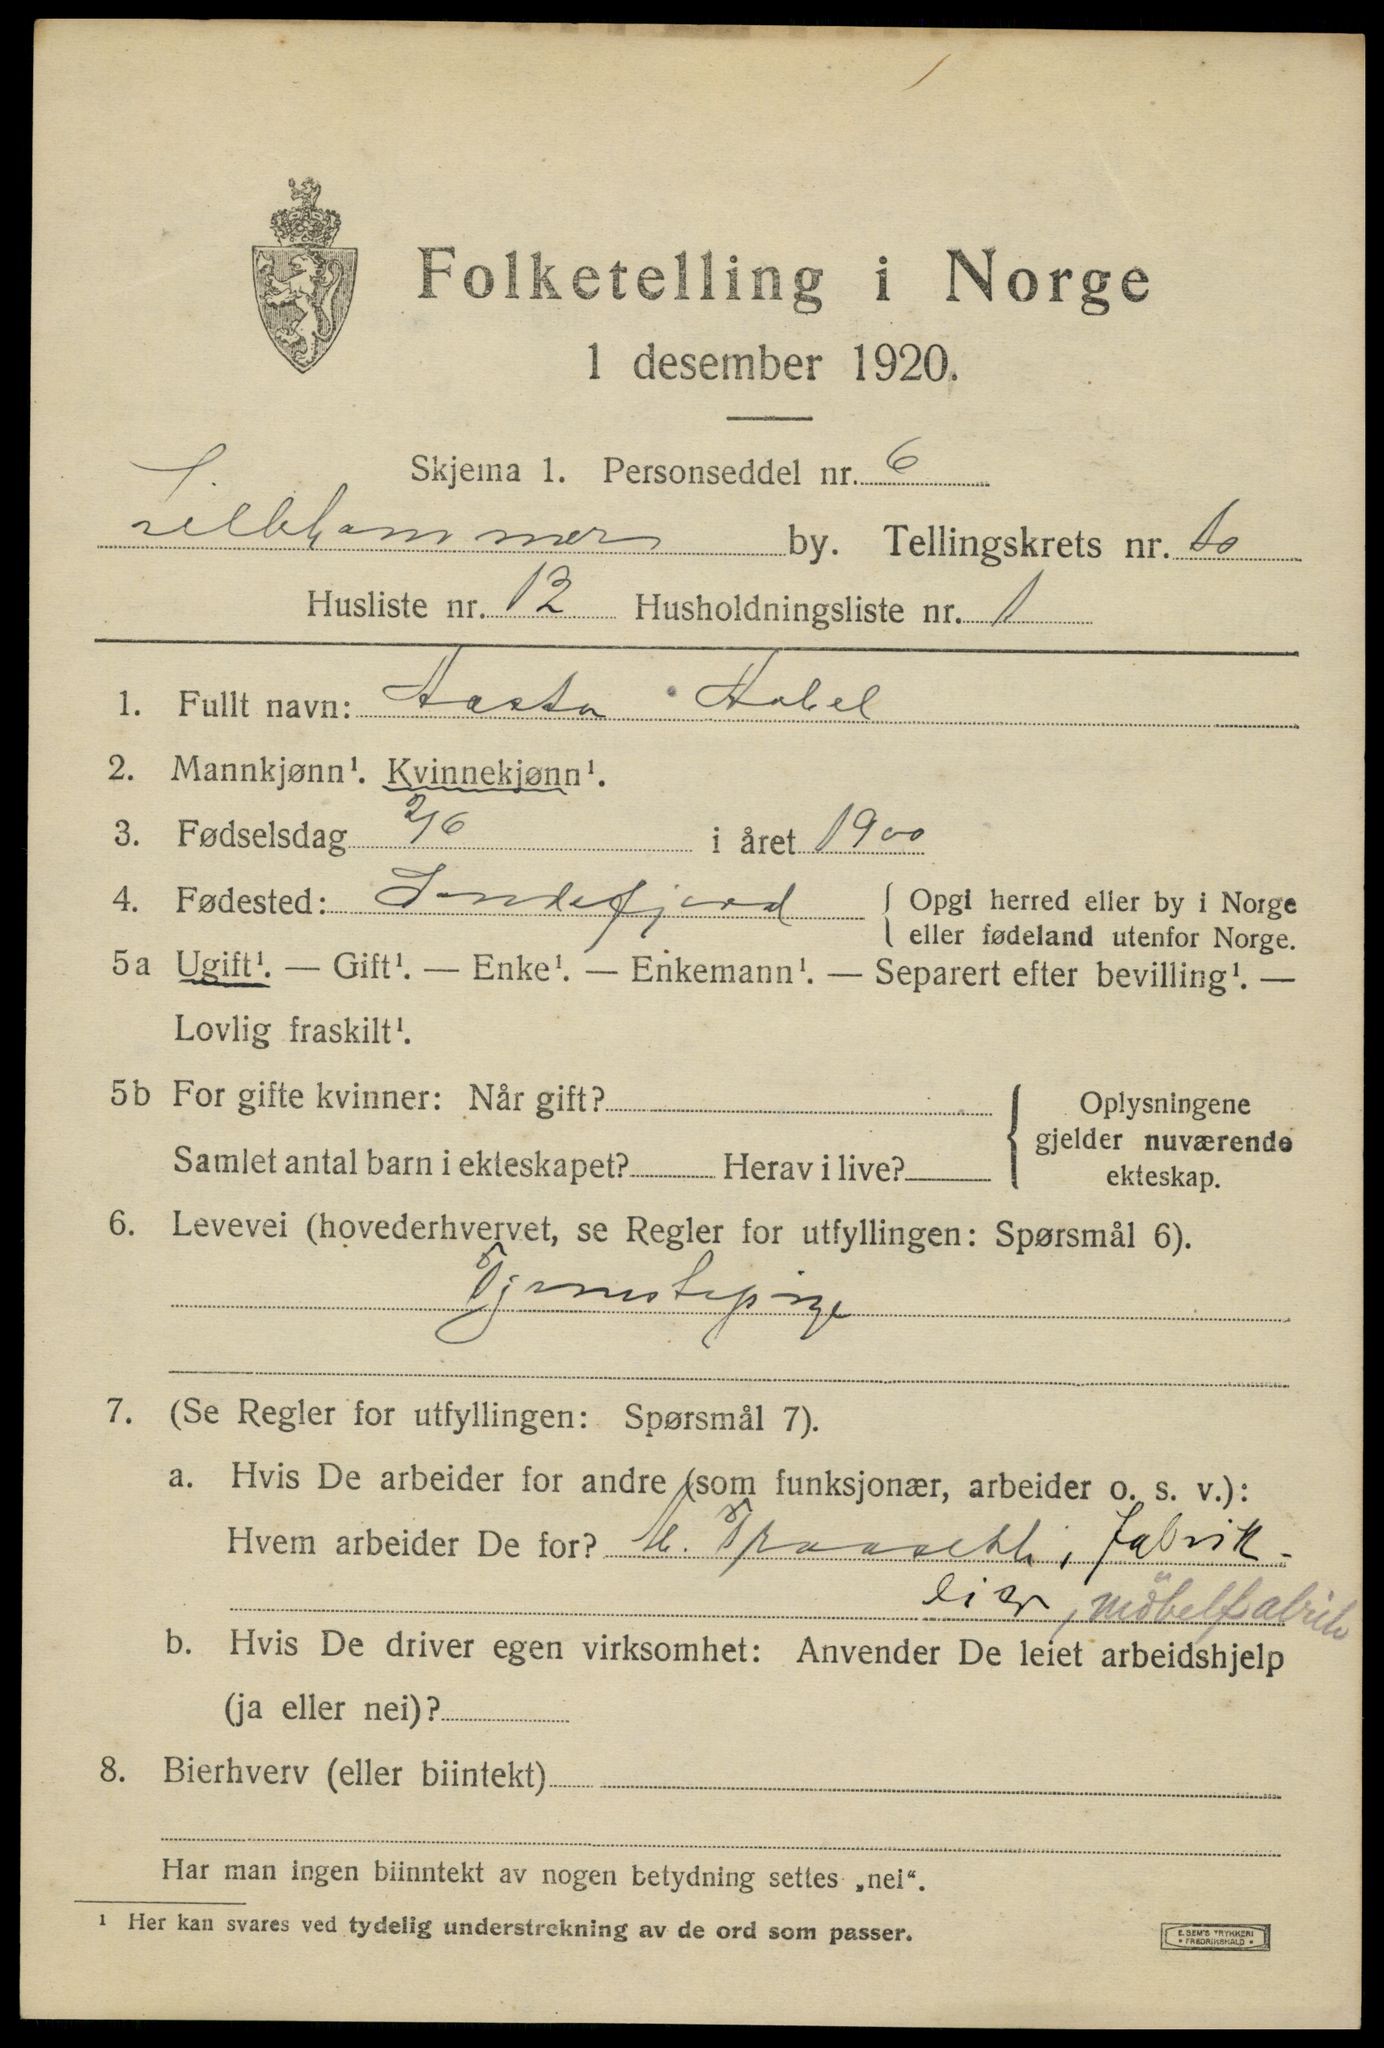 Folketelling i Norge
1 desember 1920.
Skjema 1. Personseddel nr. 6
Lillehammer by. Tellingskrets nr. 10
Husliste nr. 12 Husholdningsliste nr. 1
1. Fullt navn: Aasta Abel
2. Mannkjønn¹. Kvinnekjønn¹.
3. Fødselsdag 2/6 i året 1900
4. Fødested: Sandefjord { Opgi herred eller by i Norge
eller fødeland utenfor Norge.
5a Ugift¹. — Gift¹. — Enke¹. — Enkemann¹. — Separert efter bevilling¹. —
Lovlig fraskilt¹.
5b For gifte kvinner: Når gift?
Samlet antal barn i ekteskapet? Herav i live?
{ Oplysningene
gjelder nuværende
ekteskap.
6. Levevei (hovederhvervet, se Regler for utfyllingen: Spørsmål 6).
Tjenestepige
7. (Se Regler for utfyllingen: Spørsmål 7).
a. Hvis De arbeider for andre (som funksjonær, arbeider o. s. v.):
Hvem arbeider De for? Fabrik-
eier, möbelfabrik
b. Hvis De driver egen virksomhet: Anvender De leiet arbeidshjelp
(ja eller nei)?
8. Bierhverv (eller biintekt)
Har man ingen biinntekt av nogen betydning settes „nei“.
¹ Her kan svares ved tydelig understrekning av de ord som passer.
E. SEM'S TRYKKERI
• FREDRIKSHALD •